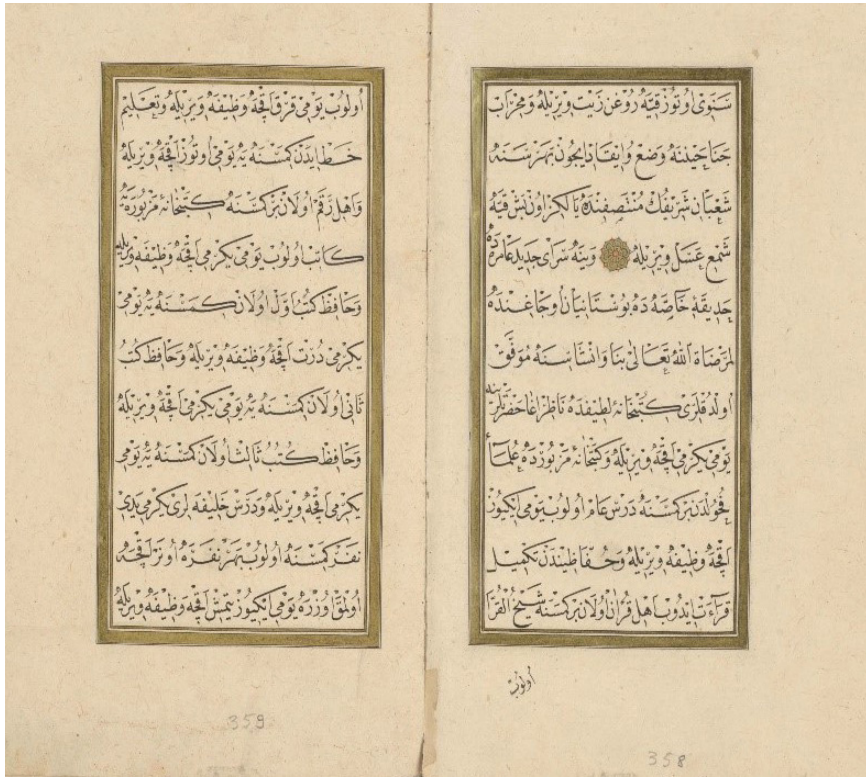 سنوى اوتوز قيه روغن زيت ويريله ومحراب
جناحيلنه وضع وايقاد ايجون بهر سنه
شعبان شريفك منتصفنده يالكز اون بش قيه
شمع عسل ويريله وينه سراى جديد عامره ده
حديقهٔ خاصه ده بوستانيان اوجاغنده
لمرضاة الله تعالى بنا وانشاسنه موفق
اولدقلرى كتبخانهٔ لطيفه ده ناظر اغا حضرتلرينه
يومى يكرمى اقچه ويريله وكتبخانهٔ مزبورده علماء
فحولدن بر كمسنه درس عام اولوب يومى ايكيوز
اقچه وظيفه ويريله وحفاظيندن تكميل
قراءت ايدوب اهل قران اولان بر كمسنه شيخ القرا
اولوب
358
اولوب يومى قرق اقچه وظيفه ويريله وتعليم
خط ايدن كمسنه يه يومى اوتوز اقچه ويريله
واهل رقم اولان بر كمسنه كتبخانهٔ مزبوره يه
كاتب اولوب يومى يكرمى اقچه وظيفه ويريله
وحافظ كتب اول اولان كمسنه يه يومى
يكرمى درت اقچه وظيفه ويريله وحافظ كتب
ثانى اولان كمسنه يه يومى يكرمى اقچه ويريله
وحافظ كتب ثالث اولان كمسنه يه يومى
يكرمى اقچه ويريله ودرس خليفه لرى يكرمى يدى
نفر كمسنه اولوب بهر نفره اونر اقچه
اولمق اوزره يومى ايكيوز يتمش اقچه وظيفه ويريله
359